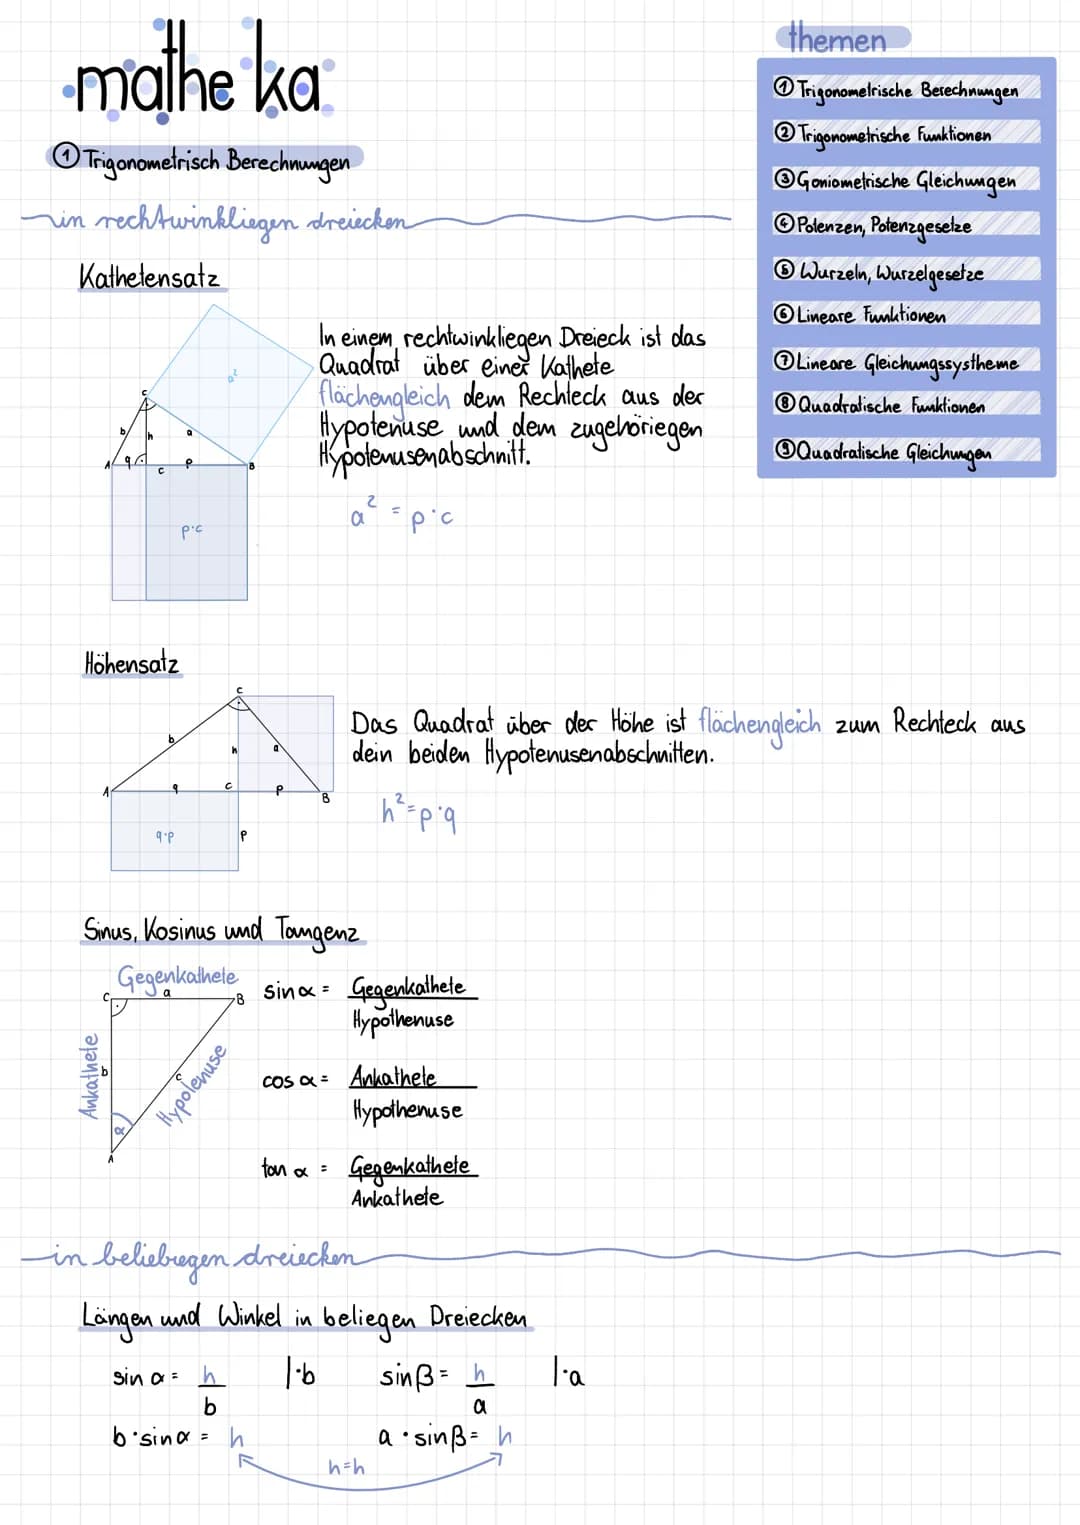 mathe ka
themen
① Trigonometrische Berechnungen
② Trigonometrische Funktionen
③ Goniometrische Gleichungen
④ Potenzen, Potenzgesetze
⑤ Wurzeln, Wurzelgesetze
⑥ Lineare Funktionen
⑦ Lineare Gleichungssystheme
⑧ Quadratische Funktionen
⑨ Quadratische Gleichungen
① Trigonometrisch Berechnungen
in rechtwinkliegen dreiecken
Kathetensatz
In einem rechtwinkliegen Dreieck ist das
Quadrat über einer Kathete
flächengleich dem Rechteck aus der
Hypotenuse und dem zugehöriegen
Hypotenusenabschnitt.
a² = p·c
a²
C
b
h
a
A
q
c
p
B
p·c
Höhensatz
Das Quadrat über der Höhe ist flächengleich zum Rechteck aus
dein beiden Hypotenusenabschnitten.
h²=p·q
C
b
h
a
A
q
c
p
B
q·p
p
Sinus, Kosinus und Tangenz
Gegenkathete
C
a
B
Ankathete
b
c
Hypotenuse
α
A
sin α = Gegenkathete
Hypothenuse
cos α = Ankathete
Hypothenuse
tan α = Gegenkathete
Ankathete
in beliebiegen dreiecken
Längen und Winkel in beliegen Dreiecken
sin α = h |·b sin β = h |·a
b a
b·sin α = h a·sin β = h
h=h